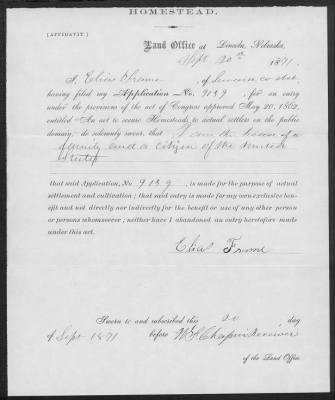 HOMESTEAD.
[AFFIDAVIT.]
Land Office at Lincoln, Nebraska,
Sept 20th 1871.
I, Elias Frame, of
having filed my Application No. 9139, for an entry
under the provisions of the act of Congress approved May 20, 1862,
entitled "An act to secure Homesteads to actual settlers on the public
domain," do solemnly swear, that I am the head of a
family and a citizen of the United
States
that said Application, No. 9139, is made for the purpose of actual
settlement and cultivation; that said entry is made for my own exclusive ben-
efit and not directly or indirectly for the benefit or use of any other person
or persons whomsoever; neither have I abandoned an entry heretofore made
under this act.
Elias Frame
Sworn to and subscribed this 20 day
of Sept 1871 before Chapin Receiver
of the Land Office.